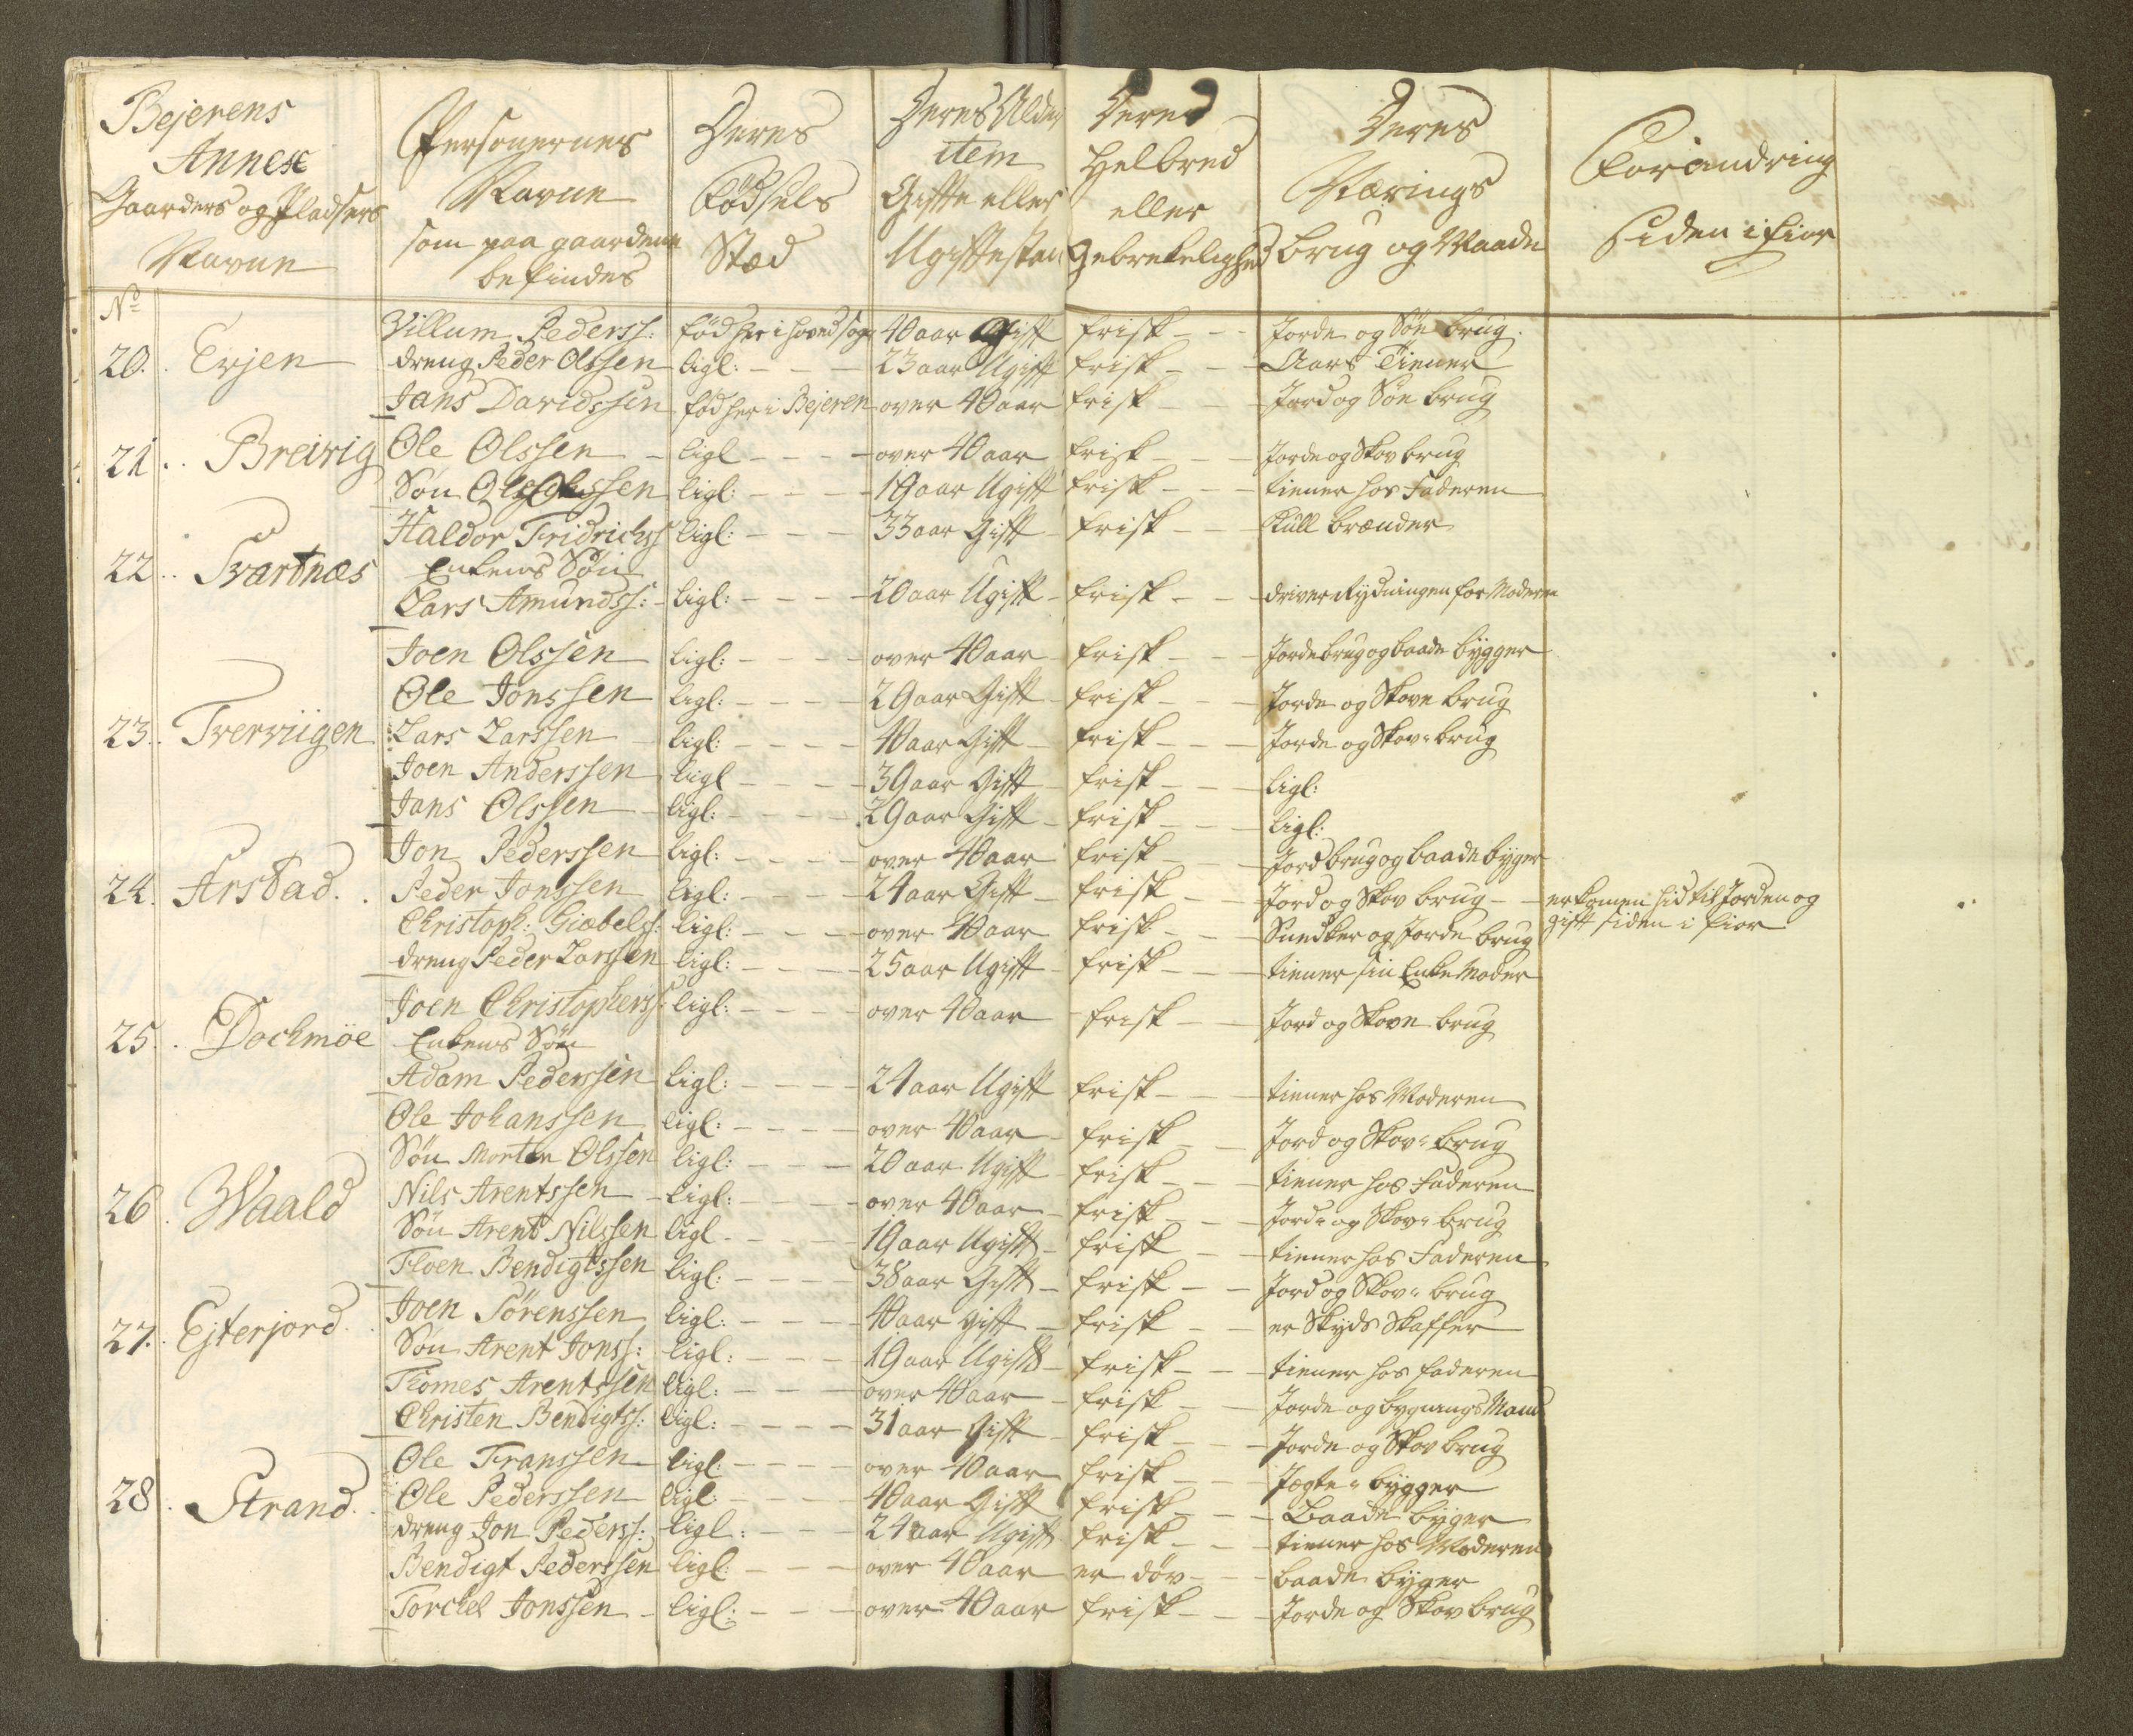 Bejerens Annex Gaarders og Pladsers Navne | Personernes Navne som paa gaardene befindes | Deres Fødsels Stæd | Deres Alder item Gifte eller Ugifte stan | Deres Helbred eller Gebrekelighed | Deres Nærings brug og Maade | Forandring siden i fior
No
20. Evjen | Villum Pederss: | fød her i hoved sogn | 40 aar Gift | frisk | Jorde og Søe brug
dreng Peder Olssen | ligl: | 23 aar Ugift | frisk | Aars Tiener
Jans Davidssen | fød her i Bejeren | over 40 aar | frisk | Jord og Søe brug
21. Breivig | Ole Olssen | ligl | over 40 aar | frisk | Jorde og Skov brug
Søn Ole Olssen | ligl: | 19 aar Ugift | frisk | tiener hos Faderen
22. Svartnæs | Haldor Fridrichss | ligl: | 33 aar Gift | frisk | Kull brænder
Enkens Søn
Lars Amundss: | ligl: | 20 aar Ugift | frisk | driver Rydningen for Moderen
23. Tverviigen | Joen Olssen | ligl: | over 40 aar | frisk | Jordebrug og baade bygger
Ole Jonssen | ligl: | 29 aar Gift | frisk | Jorde og Skove brug
Lars Larssen | ligl: | 40 aar Gift | frisk | Jorde og Skov= brug
Joen Anderssen | ligl | 39 aar Gift | frisk | ligl:
Jans Olssen | ligl: | 29 aar Gift | frisk | ligl:
24. Arstad | Jon Pederssen | ligl: | over 40 aar | frisk | Jord brug og baade byger
Peder Jonssen | ligl: | 24 aar Gift | frisk | Jord og Skov brug | er komen hid til Jorden og gift siden i fior
Christoph: Giæbelss: | ligl: | over 40 aar | frisk | Snedker og Jorde brug
dreng Peder Larssen | ligl: | 25 aar Ugift | frisk | tiener sin Enke Moder
25. Dochmöe | Joen Christopherss: | ligl: | over 40 aar | frisk | Jord og Skove brug
Enkens Søn
Adam Pederssen | ligl: | 24 aar Ugift | frisk | tiener hos Moderen
26. Waald | Ole Johanssen | ligl: | over 40 aar | frisk | Jord og Skov= brug
Søn Morten Olssen | ligl: | 20 aar Ugift | frisk | tiener hos Faderen
Nils Arentssen | ligl: | over 40 aar | frisk | Jord= og Skov= brug
Søn Arent Nilssen | ligl | 19 aar Ugift | frisk | tiener hos Faderen
Floen Bendigtssen | ligl: | 38 aar Gift | frisk | Jord og Skov= brug
27. Ejterjord | Joen Sörenssen | ligl: | 40 aar gift | frisk | er Skyds Skaffer
Søn Arent Jonss: | ligl: | 19 aar Ugift | frisk | tiener hos faderen
Thomes Arentssen | ligl: | over 40 aar | frisk | Jorde og bygnings Mand
Christen Bendigtss: | ligl: | 31 aar Gift | frisk | Jorde og Skov brug
28. Strand | Ole Franssen | ligl: | over 40 aar | frisk | Jægte= bygger
Ole Pederssen | ligl: | 40 aar Gift | frisk | Baade byger
dreng Jon Pederss: | ligl: | 24 aar Ugift | frisk | tiener hos Moderen
Bendigt Pederssen | ligl: | over 40 aar | er døv | baade byger
Torchel Jonssen | ligl: | over 40 aar | frisk | Jorde og Skov brug